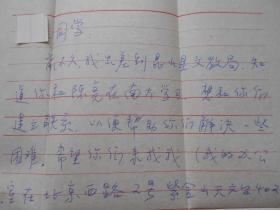 同学:
前天，我出差到昆山县文教局，知
道你和陈亮在南大学习，想和你们
建立联系，以便帮助你们解决一些
困难。希望你们来找我（我的办公
室在北京西路2号紫金山天文台402